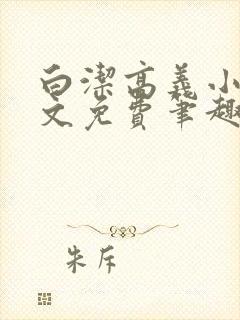 白潔高義小
文免費笔趣
朱斥